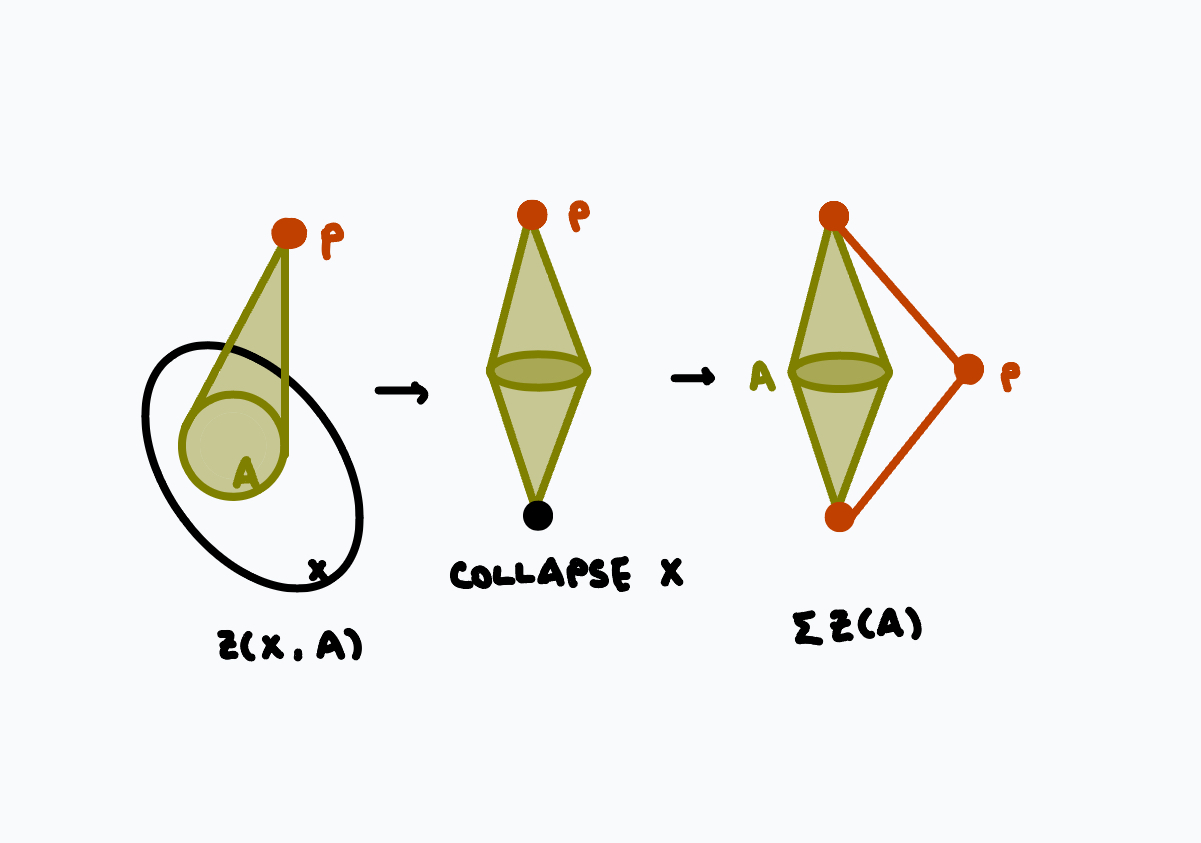 P
A
X
Z(X, A)
P
COLLAPSE X
A
P
ΣZ(A)